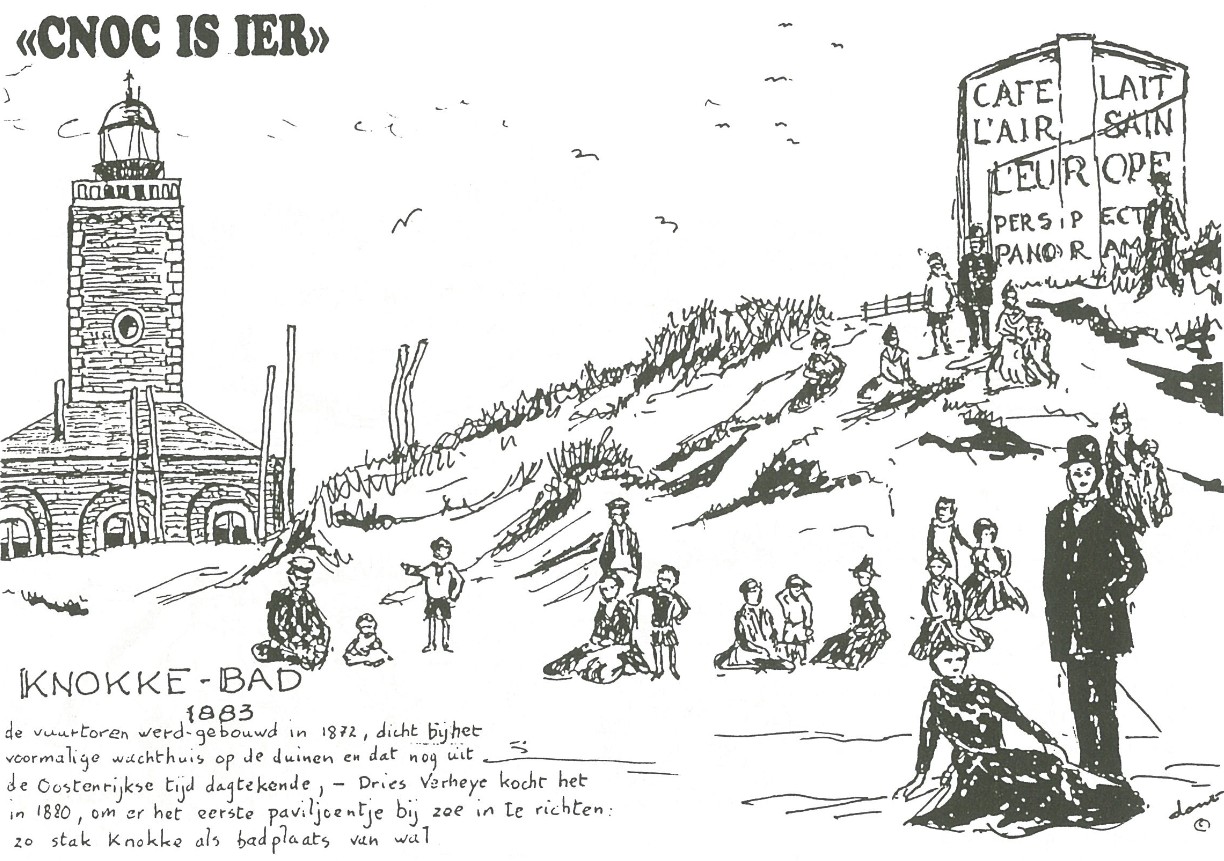 «CNOC IS IER»
CAFE LAIT
L'AIR SAIN
L'EUROPE
PERSP ECT
PANO R AM
KNOKKE-BAD
1883
de vuurtoren werd gebouwd in 1872, dicht bij het
voormalige wachthuis op de duinen en dat nog uit
de Oostenrijkse tijd dagtekende, – Dries Verheye kocht het
in 1880, om er het eerste paviljoentje bij zee in te richten:
zo stak Knokke als badplaats van wal
©